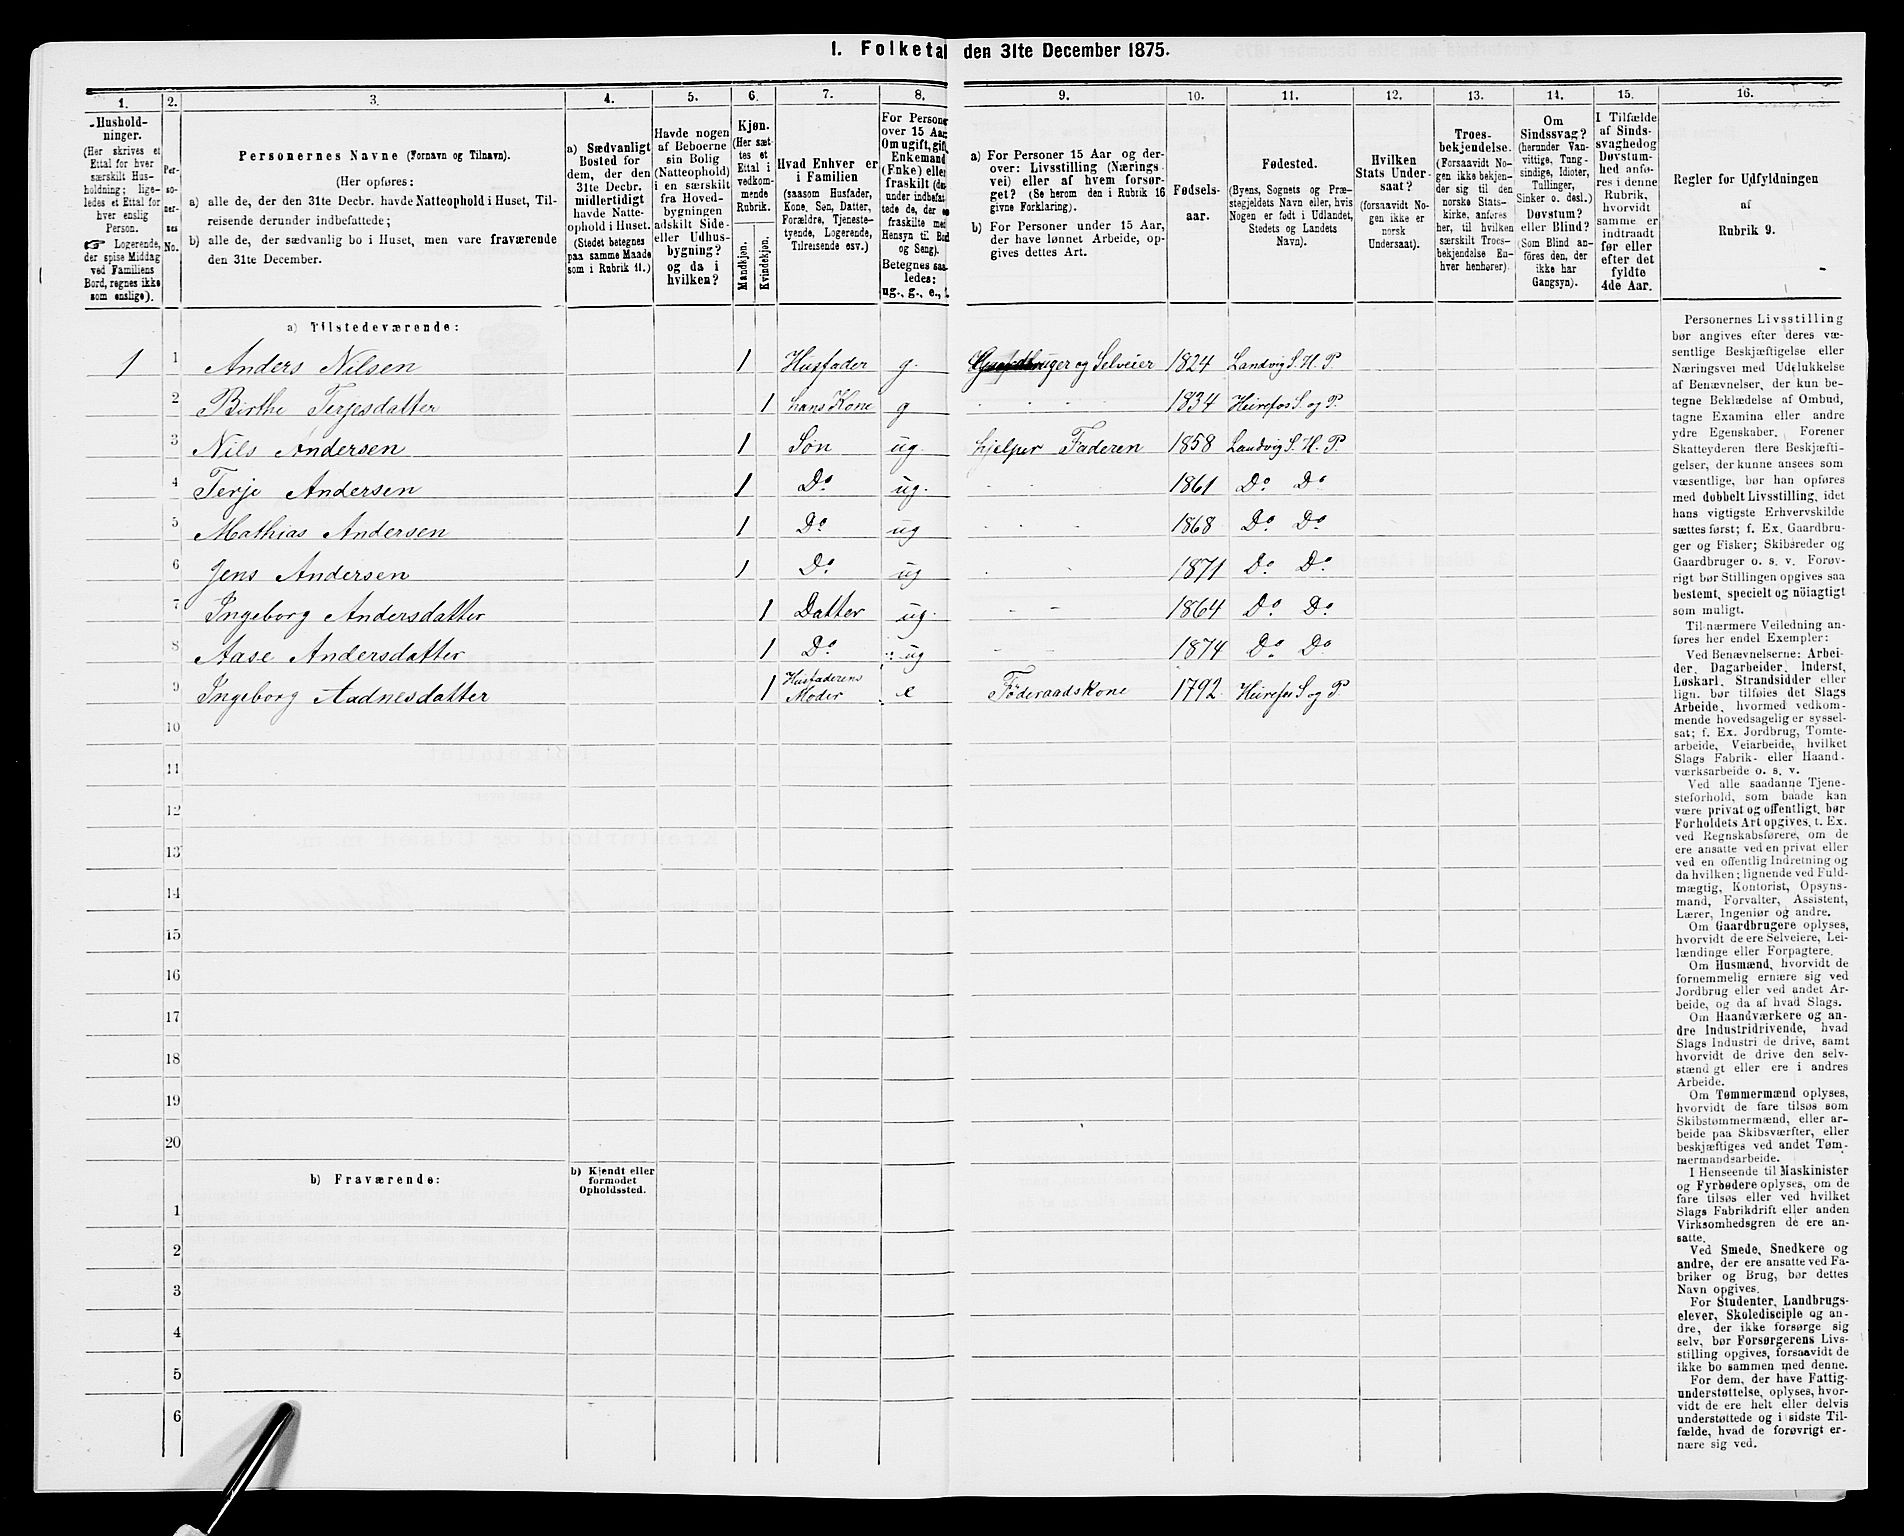 1. Folketal den 31te December 1875.
1. 2. 3. 4. 5. 6. 7. 8. 9. 10. 11. 12. 13. 14. 15. 16.
Hushold-
ninger.
(Her skrives et
Ettal for hver
særskilt Hus-
holdning; lige-
ledes et Ettal for
hver enslig
Person.
☞ Logerende,
der spise Middag
ved Familiens
Bord, regnes ikke
som enslige).
Per-
so-
ner-
nes
No.
Personernes Navne (Fornavn og Tilnavn).
(Her opføres:
a) alle de, der den 31te Decbr. havde Natteophold i Huset, Til-
reisende derunder indbefattede;
b) alle de, der sædvanlig bo i Huset, men vare fraværende
den 31te December.
a) Sædvanligt
Bosted for
dem, der den
31te Decbr.
midlertidigt
havde Natte-
ophold i Huset.
(Stedet betegnes
paa samme Maade
som i Rubrik 11.)
Havde nogen
af Beboerne
sin Bolig
(Natteophold)
i en særskilt
fra Hoved-
bygningen
adskilt Side-
eller Udhus-
bygning?
og da i
hvilken?
Kjøn.
(Her sæt-
tes et
Ettal i
vedkom-
mende
Rubrik.
Mandkjøn.
Kvindekjøn.
Hvad Enhver er
i Familien
(saasom Husfader,
Kone, Søn, Datter,
Forældre, Tjeneste-
tyende, Logerende,
Tilreisende esv.)
For Persone
over 15 Aar
Om ugift, gift,
Enkemand
(Enke) eller
fraskilt (de
under indbefat
tede de, der e
fraskilte me
Hensyn til Bo
og Seng).
Betegnes saa
ledes:
ug., g., e.,
a) For Personer 15 Aar og der-
over: Livsstilling (Nærings-
vei) eller af hvem forsør-
get? (Se herom den i Rubrik 16
givne Forklaring).
b) For Personer under 15 Aar,
der have lønnet Arbeide, op-
gives dettes Art.
Fødsels-
aar.
Fødested.
(Byens, Sognets og Præ-
stegjeldets Navn eller, hvis
Nogen er født i Udlandet,
Stedets og Landets
Navn).
Hvilken
Stats Under-
saat?
(forsaavidt No-
gen ikke er
norsk
Undersaat).
Troes-
bekjendelse.
(Forsaavidt No-
gen ikke bekjen-
der sig til den
norske Stats-
kirke, anføres
her, til hvilken
særskilt Troes-
bekjendelse En-
hver henhører).
Om
Sindssvag?
(herunder Van-
vittige, Tung-
sindige, Idioter,
Tullinger,
Sinker o. desl.)
Døvstum?
eller Blind?
(Som Blind an-
føres den, der
ikke har
Gangsyn).
I Tilfælde
af Sinds-
svaghed og
Døvstum-
hed anfø-
res i denne
Rubrik,
hvorvidt
samme er
indtraadt
før eller
efter det
fyldte
4de Aar.
Regler for Udfyldningen
af
Rubrik 9.
a) Tilstedeværende:
1 1 Anders Nilsen 1 Husfader g. Gaardbruger og Selveier 1824 Landvig S. H. P.
2 Birthe Terjesdatter 1 hans Kone g 1834 Heirefos S. og P.
3 Nils Andersen 1 Søn ug. hjelper Faderen 1858 Landvig S. H. P.
4 Terje Andersen 1 Do ug. 1861 Do Do
5 Mathias Andersen 1 Do ug 1868 Do Do
6 Jens Andersen 1 Do ug 1871 Do Do
7 Ingeborg Andersdatter 1 Datter ug. 1864 Do Do
8 Aase Andersdatter 1 Do ug 1874 Do Do
9 Ingeborg Aadnesdatter 1 Husfaderens Moder e Föderaadskone 1792 Heirefos S og P
10
11
12
13
14
15
16
17
18
19
20
b) Fraværende:
b) Kjendt eller
formodet
Opholdssted.
1
2
3
4
5
6
Personernes Livsstilling
bør angives efter deres væ-
sentlige Beskjæftigelse eller
Næringsvei med Udelukkelse
af Benævnelser, der kun be-
tegne Beklædelse af Ombud,
tagne Examina eller andre
ydre Egenskaber. Forener
Skatteyderen flere Beskjæfti-
gelser, der kunne ansees som
væsentlige, bør han opføres
med dobbelt Livsstilling, idet
hans vigtigste Erhvervskilde
sættes først; f. Ex. Gaardbru-
ger og Fisker; Skibsreder og
Gaardbruger o. s. v. Forøv-
rigt bør Stillingen opgives saa
bestemt, specielt og nöiagtigt
som muligt.
Til nærmere Veiledning an-
føres her endel Exempler:
Ved Benævnelserne: Arbei-
der, Dagarbeider, Inderst,
Løskarl, Strandsidder eller
lign. bør tilføies det Slags
Arbeide, hvormed vedkom-
mende hovedsagelig er syssel-
sat; f. Ex. Jordbrug, Tomte-
arbeide, Veiarbeide, hvilket
Slags Fabrik- eller Haand-
værksarbeide o. s. v.
Ved alle saadanne Tjene-
steforhold, som baade kan
være privat og offentligt, bør
Forholdets Art opgives, t. Ex.
ved Regnskabsførere, om de
ere ansatte ved en privat eller
ved en offentlig Indretning og
da hvilken; lignende ved Fuld-
mægtig, Kontorist, Opsyns-
mand, Forvalter, Assistent,
Lærer, Ingeniør og andre.
Om Gaardbrugere oplyses,
hvorvidt de ere Selveiere, Lei-
lændinge eller Forpagtere.
Om Husmænd, hvorvidt de
fornemmelig ernære sig ved
Jordbrug eller ved andet Ar-
beide, og da af hvad Slags.
Om Haandværkere og an-
dre Industridrivende, hvad
Slags Industri de drive, samt
hvorvidt de drive den selv-
stænd gt eller ere i andres
Arbeide.
Om Tømmermænd oplyses,
hvorvidt de fare tilsøs som
Skibstømmermænd, eller ar-
beide paa Skibsværfter, eller
beskjæftiges ved andet Tøm-
mermandsarbeide.
I Henseende til Maskinister
og Fyrbødere oplyses, om de
fare tilsøs eller ved hvilket
Slags Fabrikdrift eller anden
Virksomhedsgren de ere an-
satte.
Ved Smede, Snedkere og
andre, der ere ansatte ved Fa-
briker og Brug, bør dettes
Navn opgives.
For Studenter, Landbrugs-
elever, Skoledisciple og an-
dre, der ikke forsørge sig
selv, bør Forsørgerens Livs-
stilling opgives, forsaavidt de
ikke bo sammen med denne.
For dem, der have Fattig-
understøttelse, oplyses, hvor-
vidt de ere helt eller delvis
understøttede og i sidste Til-
fælde, hvad de forøvrigt er-
nære sig ved.